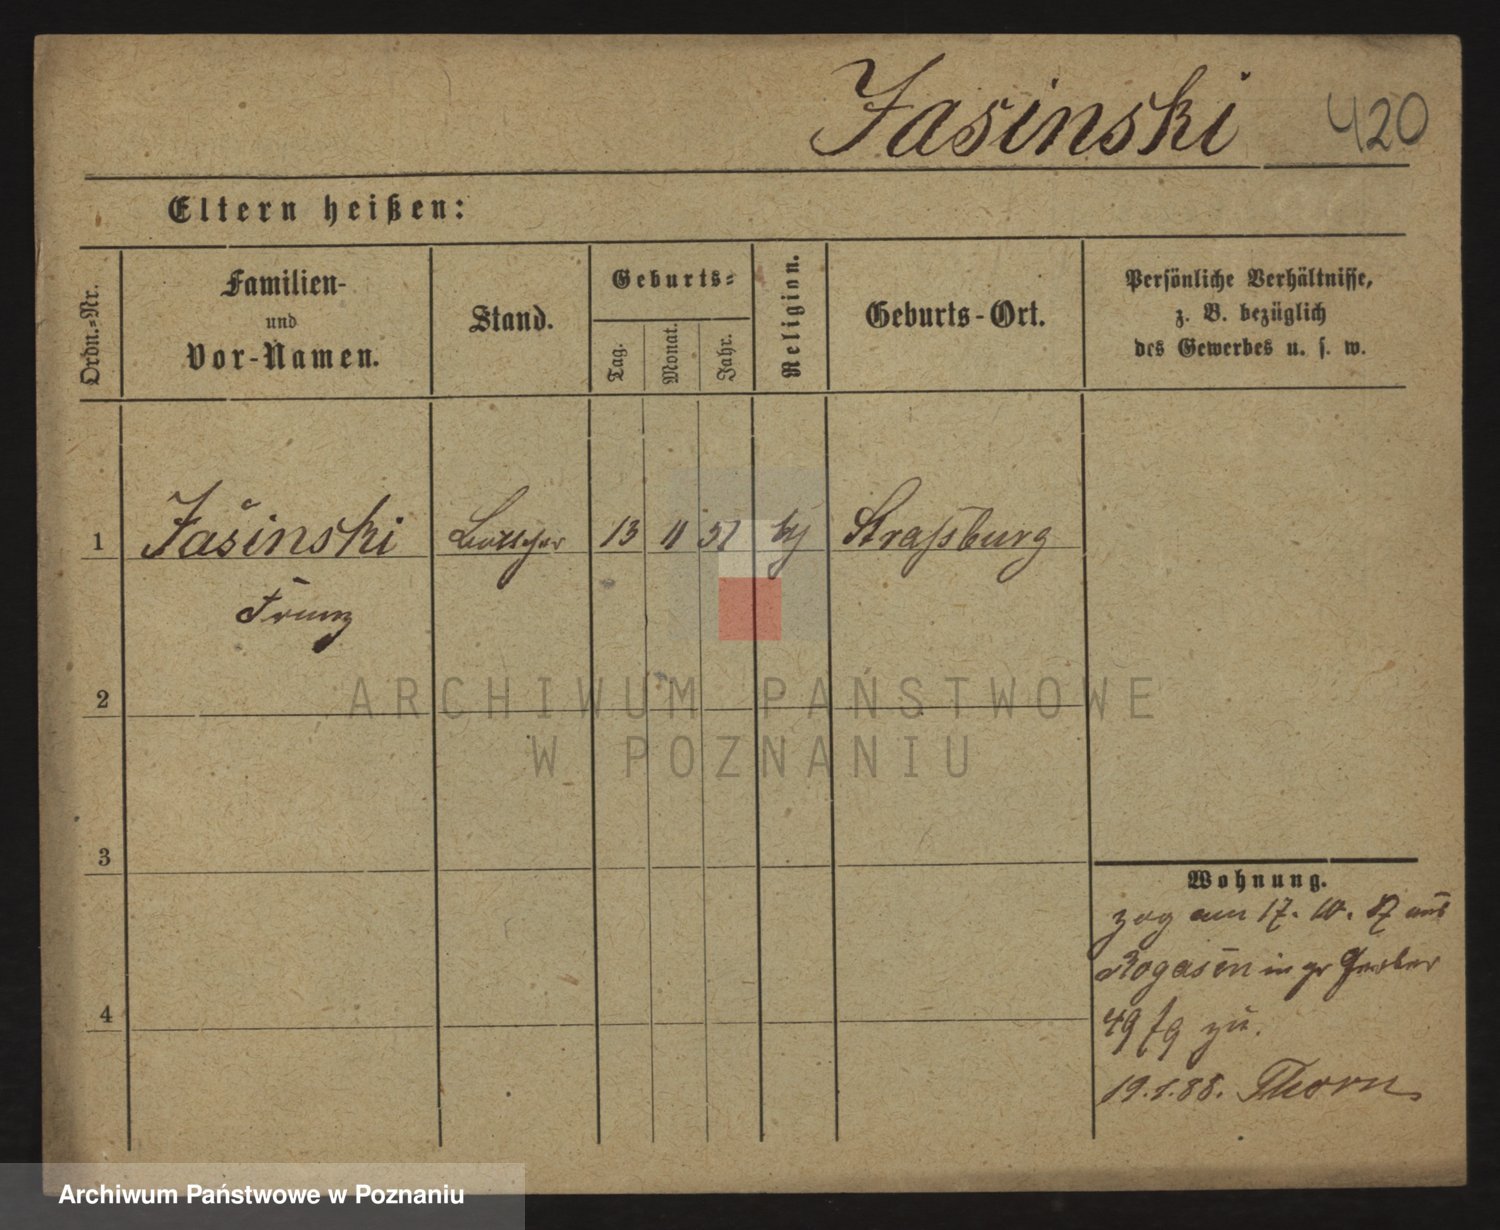 Jasinski 420
Eltern heißen:
Ordn.=Nr.
Familien-
und
Vor-Namen.
Stand.
Geburts=
Tag.
Monat.
Jahr.
Religion.
Geburts-Ort.
Persönliche Verhältnisse,
z. B. bezüglich
des Gewerbes u. s. w.
1 Jasinski Böttcher 13 11 Straßburg
Franz
2
3
4
Wohnung.
zog am 17. 10. 87 aus
Rogasen in gr Gerber
49 zu.
19.1.88. Thorn
ARCHIWUM PAŃSTWOWE
W POZNANIU
Archiwum Państwowe w Poznaniu